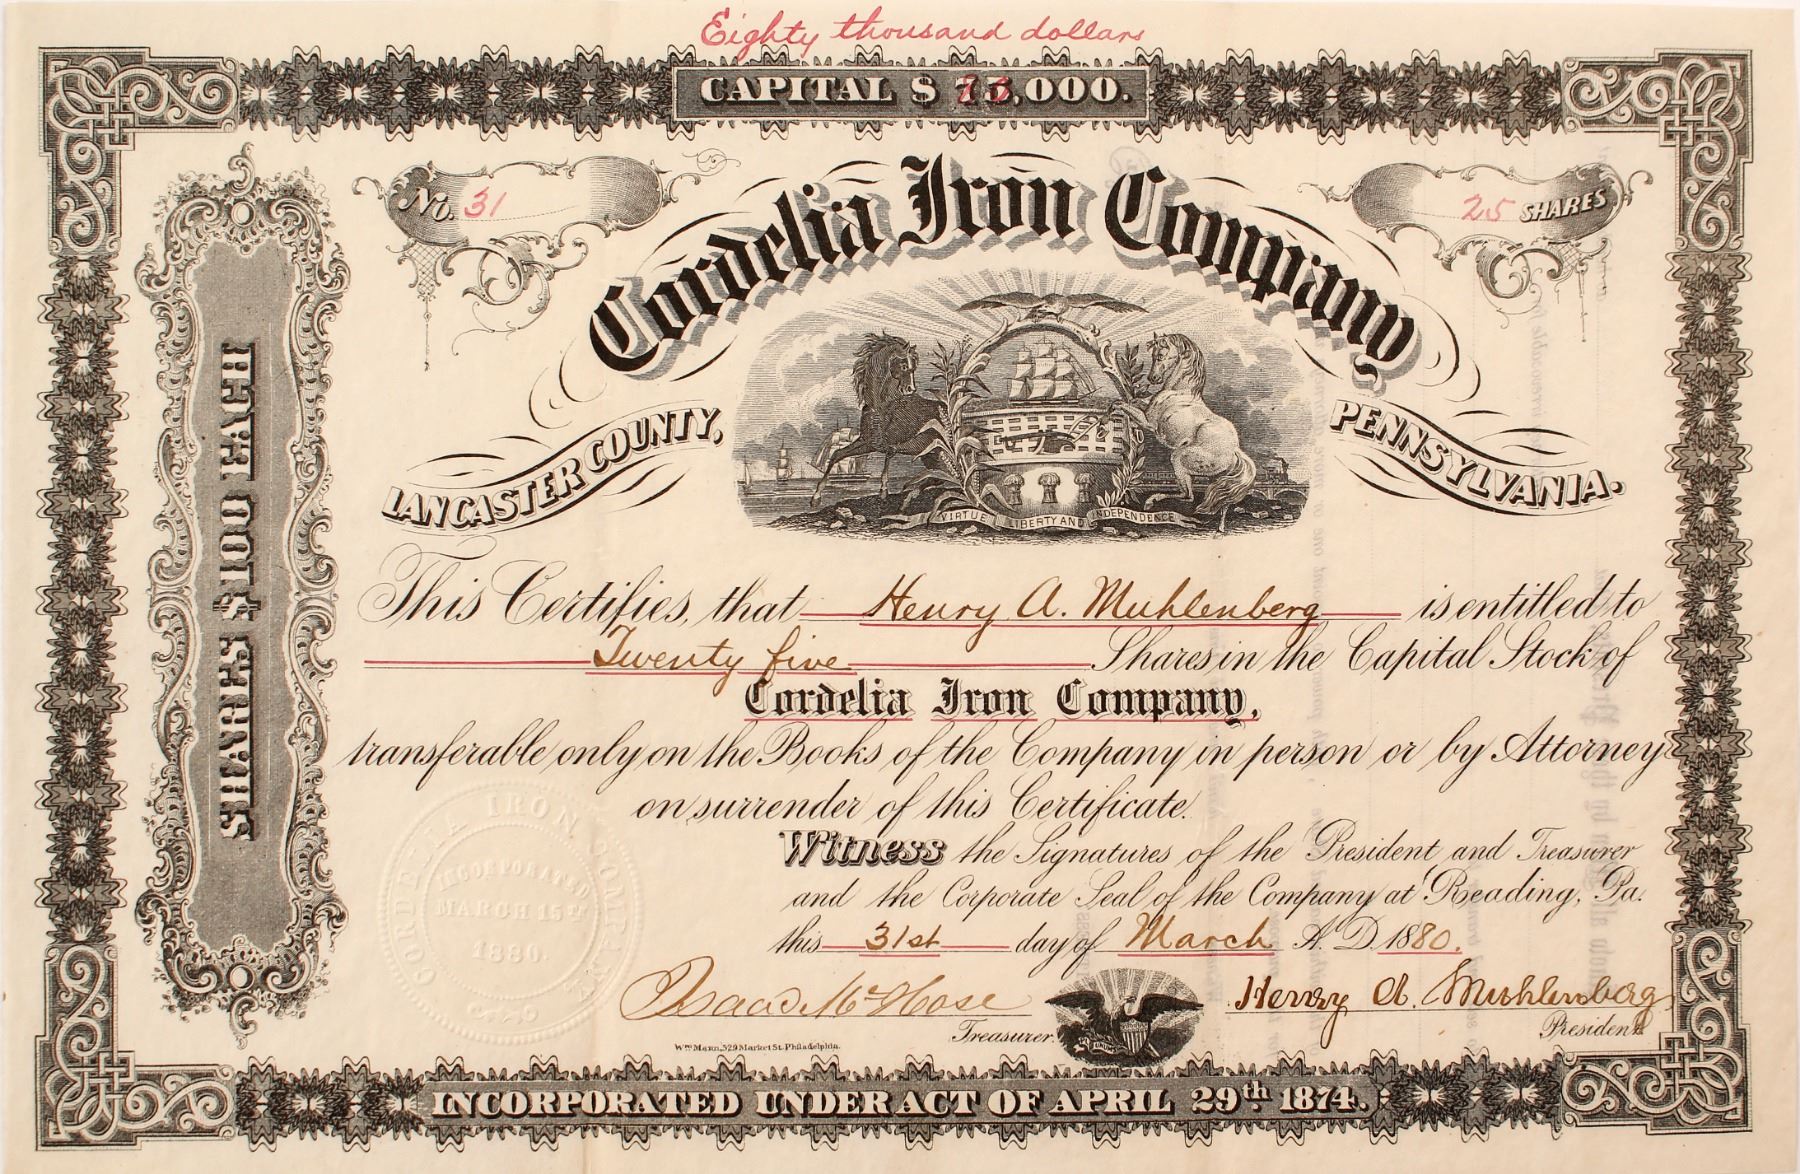 Eighty thousand dollars
CAPITAL $ ,000.
No. 31
25 SHARES
Cordelia Iron Company
LANCASTER COUNTY,
PENNSYLVANIA.
VIRTUE LIBERTY AND INDEPENDENCE
SHARES $100 EACH
This Certifies, that Henry A. Muhlenberg is entitled to
Twenty five Shares in the Capital Stock of
Cordelia Iron Company,
transferable only on the Books of the Company in person or by Attorney
on surrender of this Certificate.
Witness the Signatures of the President and Treasurer
and the Corporate Seal of the Company at Reading, Pa.
this 31st day of March A.D. 1880.
CORDELIA IRON COMPANY
INCORPORATED
MARCH 15TH
1880.
Isaac McHose
Treasurer.
Henry A. Muhlenberg
President
Wm. Mann, 529 Market St. Philadelphia.
INCORPORATED UNDER ACT OF APRIL 29th 1874.